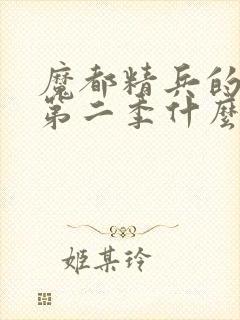 魔都精兵的
第二季什麼
姬某玲